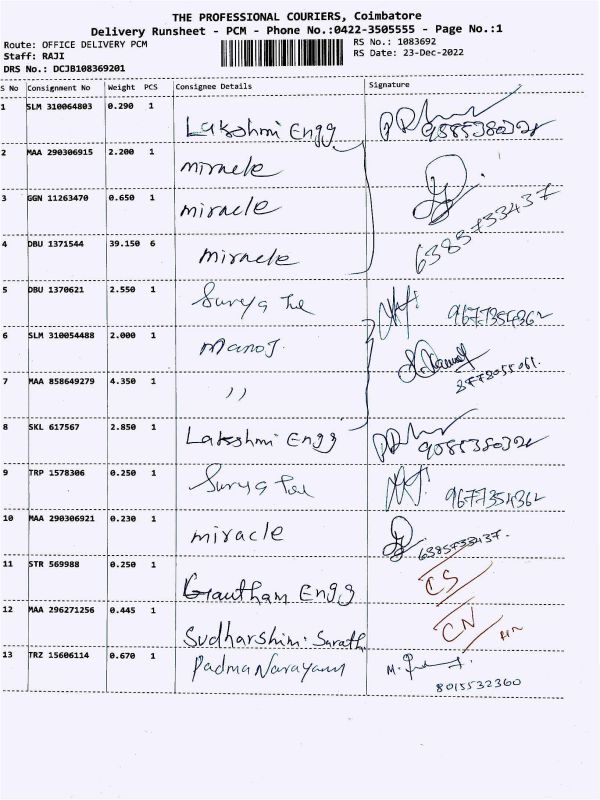 THE PROFESSIONAL COURIERS, Coimbatore
Delivery Runsheet - PCM - Phone No.:0422-3505555 - Page No.:1
Route: OFFICE DELIVERY PCM
RS No.: 1083692
Staff: RAJI
RS Date: 23-Dec-2022
DRS No.: DCJB108369201
S No Consignment No Weight PCS Consignee Details Signature
1 SLM 310064803 0.290 1 Lakshmi Engg
2 MAA 290306915 2.200 1 miracle
3 GGN 11263470 0.650 1 miracle
6385733437
4 DBU 1371544 39.150 6 miracle
5 DBU 1370621 2.550 1 Surya 9677354362
6 SLM 310054488 2.000 1 Manoj.
8778055061.
7 MAA 858649279 4.350 1 ,,
8 SKL 617567 2.850 1 Lakshmi Engg
9 TRP 1578306 0.250 1 Surya 9677354362
10 MAA 290306921 0.230 1 miracle 6385733437.
11 STR 569988 0.250 1 Gautham Engg CS
12 MAA 296271256 0.445 1 Sudharshim. Sarath CN
13 TRZ 15606114 0.670 1 Padma Narayann
8015532360